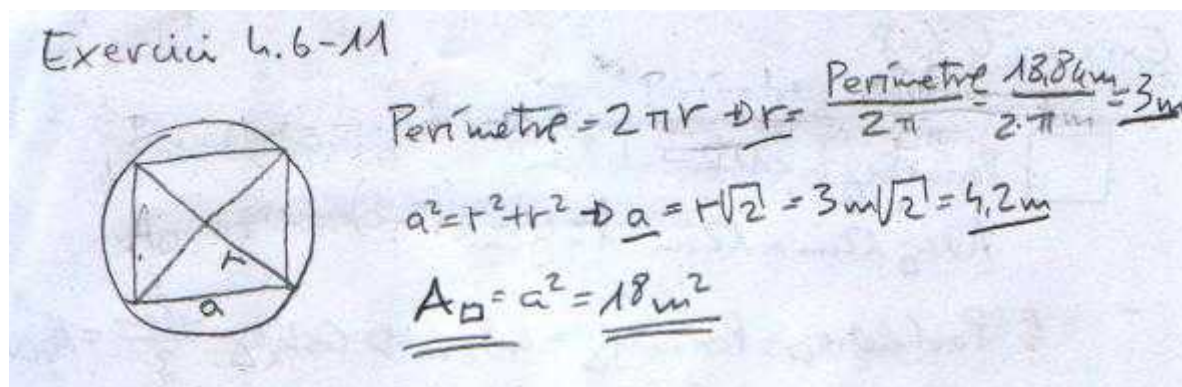 Exercici 4.6-11
Perímetre = 2πr → r = Perímetre / 2π = 18,84m / 2·π = 3m
a² = r² + r² → a = r√2 = 3m√2 = 4,2m
r
a
A□ = a² = 18m²